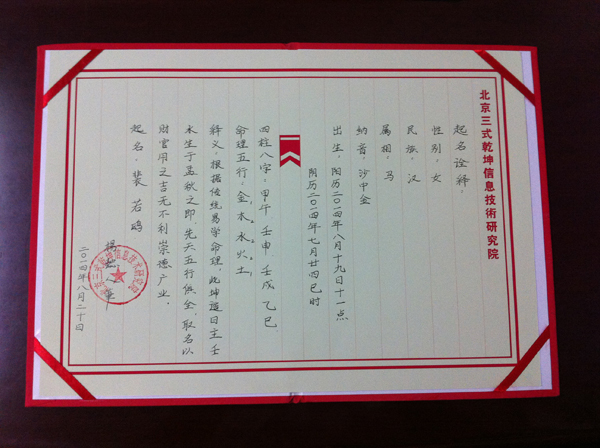 北京三式乾坤信息技術研究院
起名诠释:
性别:女
民族:汉
属相:马
纳音:沙中金
出生:阳历二〇一四年八月十九日十一点
阴历二〇一四年七月廿四巳时
四柱八字:甲午 壬申 壬戌 乙巳
命理五行:金、木、水、火、土
释义:根据传统易学命理,此坤造日主壬
水生于孟秋之即,先天五行俱全,取名以
财官用之吉无不利崇德广业.
起名:裴若
北京三式乾坤信息技术研究院
二〇一四年八月二十日